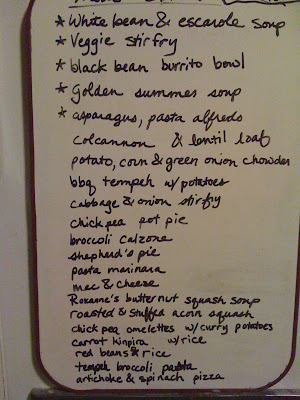 * White bean & escarole soup
* Veggie stirfry
* black bean burrito bowl
* Golden summer soup
* asparagus, pasta alfredo
colcannon & lentil loaf
potato, corn & green onion chowder
bbq tempeh w/ potatoes
cabbage & onion stirfry
chick pea pot pie
broccoli calzone
shepherd's pie
pasta marinara
mac & cheese
Roxanne's butternut squash soup
roasted & stuffed acorn squash
chick pea omelettes w/ curry potatoes
carrot kinpira w/ rice
red beans & rice
tempeh broccoli pasta
artichoke & spinach pizza